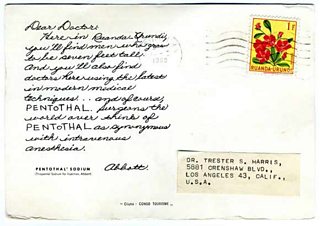 Dear Doctor:
Here in Ruanda-Urundi,
you'll find men who grow
to be seven feet tall.
And you'll also find
doctors here using the latest
in modern medical
techniques... and of course,
PENTOTHAL. Surgeons the
world over think of
PENTOTHAL as synonymous
with intravenous
anesthesia.
PENTOTHAL® SODIUM
(Thiopental Sodium for Injection, Abbott)
Abbott.
1F
RUANDA-URUNDI
DR. TRESTER S. HARRIS,
5681 CRENSHAW BLVD.,
LOS ANGELES 43, CALIF.,
U.S.A.
CONGO TOURISME